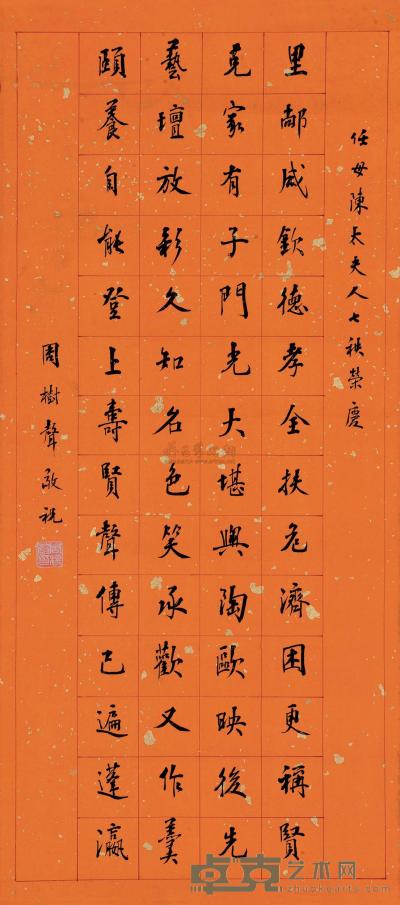 任母陳太夫人七秩榮慶
里鄰咸欽德孝全扶危濟困更稱賢
克家有子門光大堪與陶歐映後先
藝壇放彩久知名色笑承歡又作羹
頤養自能登上壽賢聲傳已遍蓬瀛
周樹聲敬祝
卓克艺术网
www.zhuokearts.com